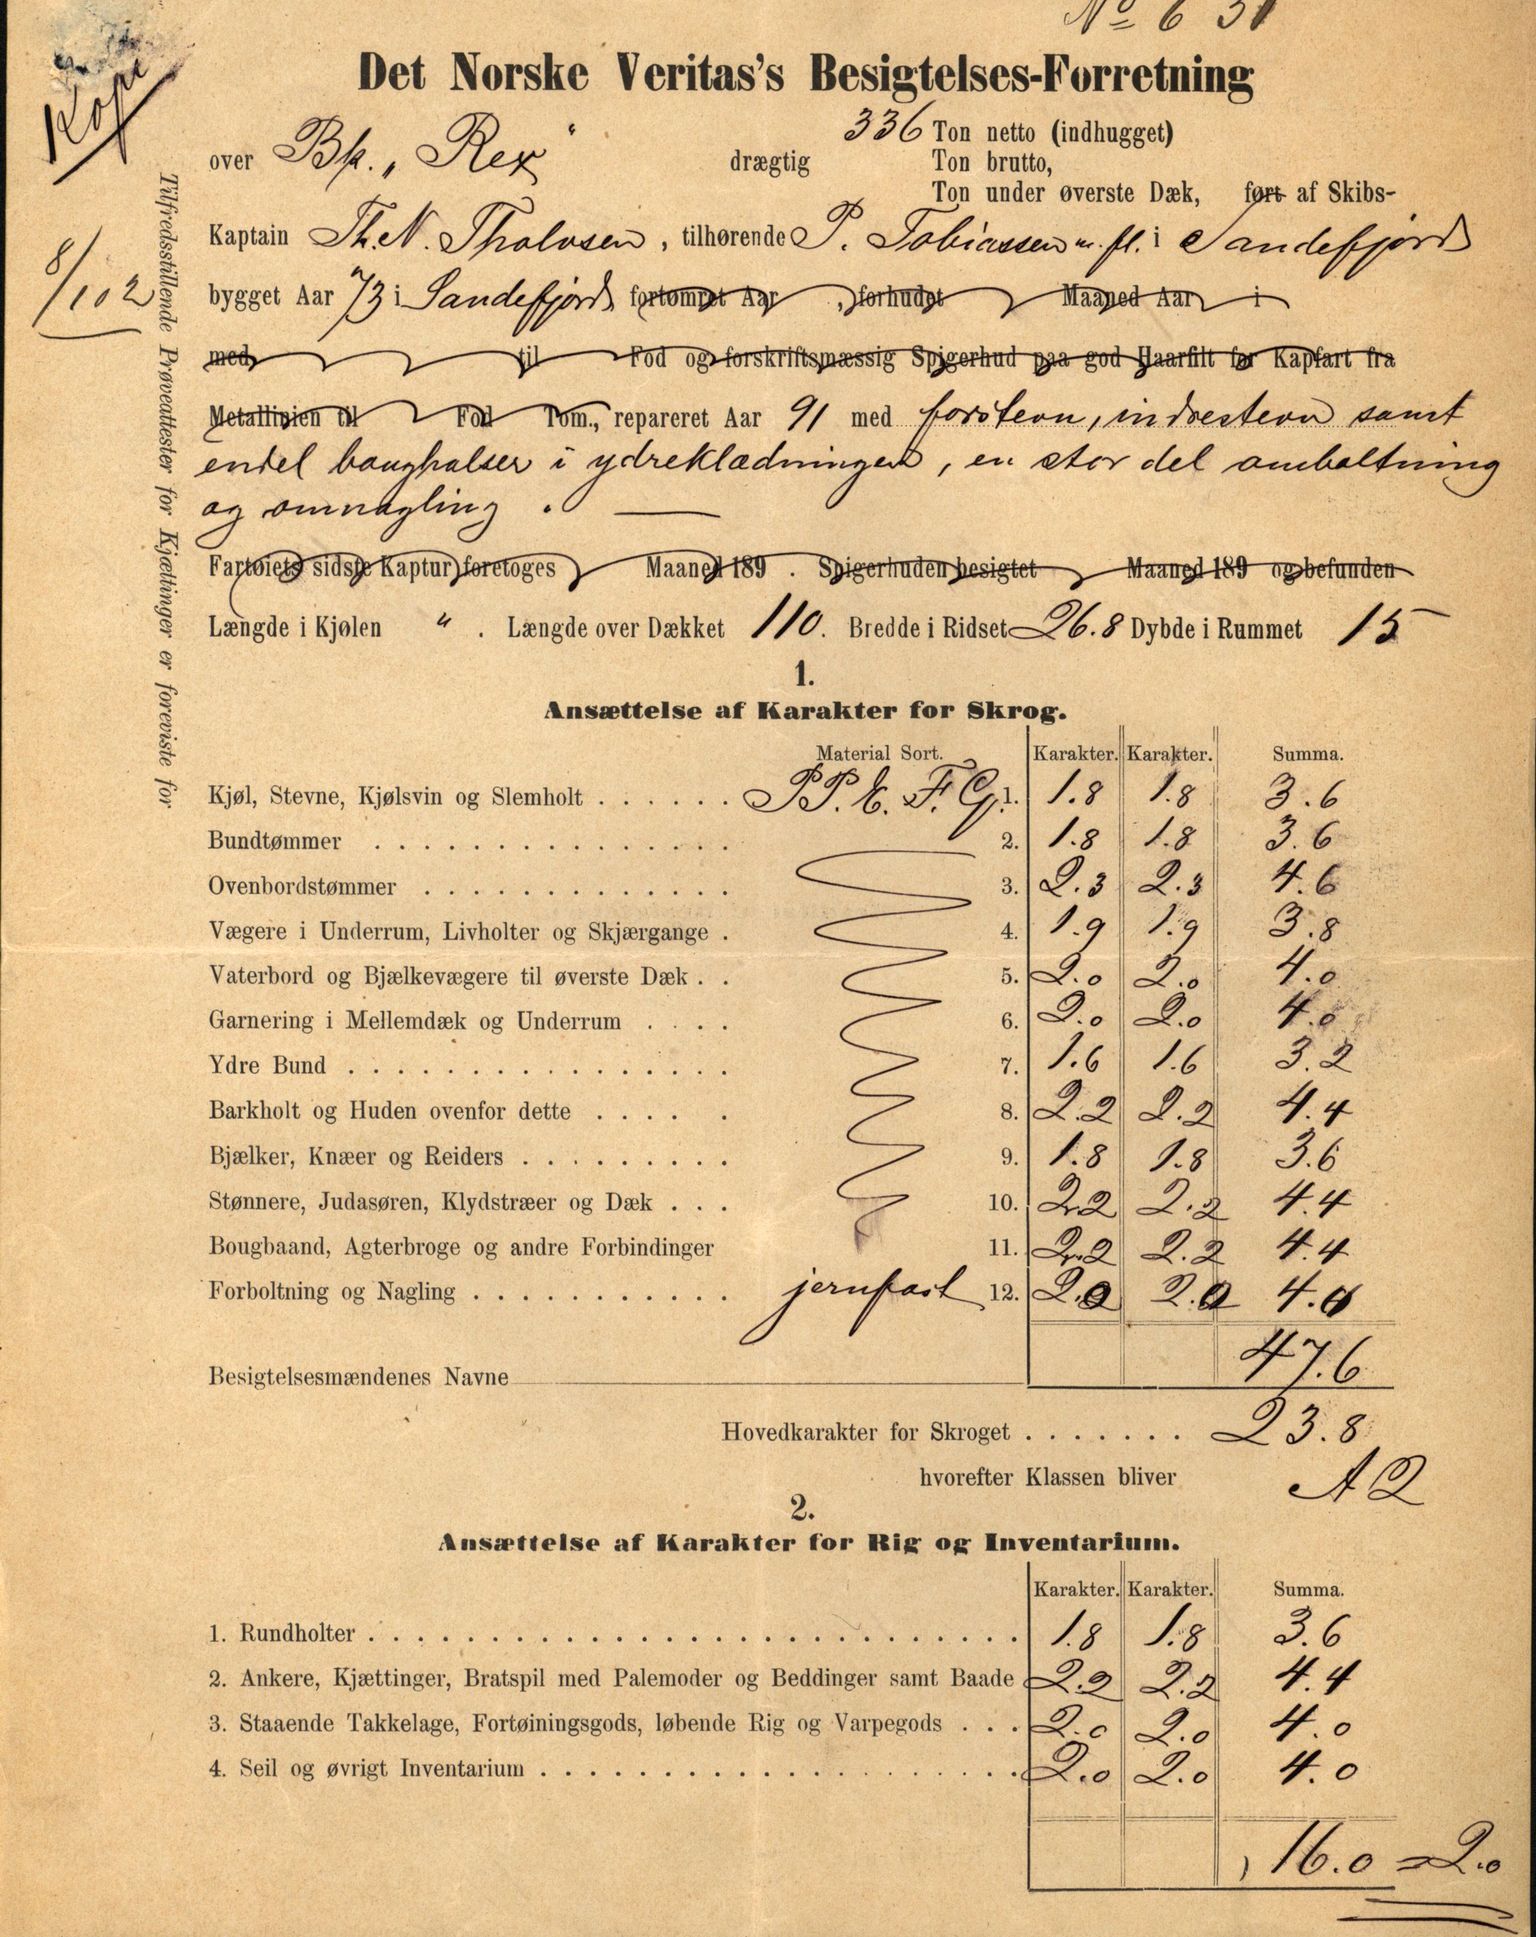 No 6 31
Kopi
Det Norske Veritas's Besigtelses-Forretning
336 Ton netto (indhugget)
over Bk. „Rex" drægtig Ton brutto,
Ton under øverste Dæk, ført af Skibs-
Kaptain Th. N. Tholvsen, tilhørende P. Tobiassen m. fl. i Sandefjord
8/10 2
bygget Aar 73 i Sandefjord fortømret Aar , forhudet Maaned Aar i
med til Fod og forskriftsmæssig Spigerhud paa god Haarfilt før Kapfart fra
Metallinien til Fod Tom., repareret Aar 91 med forstevn, indrestevn samt
endel boughalser i ydreklædningen, en stor del omboltning
og omnagling .
Fartøiets sidste Kaptur foretoges Maaned 189 . Spigerhuden besigtet Maaned 189 og befunden
Længde i Kjølen " . Længde over Dækket 110. Bredde i Ridset 26.8 Dybde i Rummet 15
Tilfredsstillende Prøveattester for Kjættinger er foreviste for
1.
Ansættelse af Karakter for Skrog.
Material Sort. Karakter. Karakter. Summa.
Kjøl, Stevne, Kjølsvin og Slemholt . . . . . . PP. E. F. G. 1. 1.8 1.8 3.6
Bundtømmer . . . . . . . . . . . . . . . 2. 1.8 1.8 3.6
Ovenbordstømmer . . . . . . . . . . . . . 3. 2.3 2.3 4.6
Vægere i Underrum, Livholter og Skjærgange . 4. 1.9 1.9 3.8
Vaterbord og Bjælkevægere til øverste Dæk . . 5. 2.0 2.0 4.0
Garnering i Mellemdæk og Underrum . . . . 6. 2.0 2.0 4.0
Ydre Bund . . . . . . . . . . . . . . . . 7. 1.6 1.6 3.2
Barkholt og Huden ovenfor dette . . . . . 8. 2.2 2.2 4.4
Bjælker, Knæer og Reiders . . . . . . . . . 9. 1.8 1.8 3.6
Stønnere, Judasøren, Klydstræer og Dæk . . . 10. 2.2 2.2 4.4
Bougbaand, Agterbroge og andre Forbindinger 11. 2.2 2.2 4.4
Forboltning og Nagling . . . . . . . . . . . jernfast 12. 2.0 2.0 4.0
47.6
Besigtelsesmændenes Navne
Hovedkarakter for Skroget . . . . . . . 23.8
hvorefter Klassen bliver A 2
2.
Ansættelse af Karakter for Rig og Inventarium.
Karakter. Karakter. Summa.
1. Rundholter . . . . . . . . . . . . . . . . . . . . . . . . . . . . 1.8 1.8 3.6
2. Ankere, Kjættinger, Bratspil med Palemoder og Beddinger samt Baade 2.2 2.2 4.4
3. Staaende Takkelage, Fortøiningsgods, løbende Rig og Varpegods . . . 2.0 2.0 4.0
4. Seil og øvrigt Inventarium . . . . . . . . . . . . . . . . . . . . 2.0 2.0 4.0
16.0 = 2.0